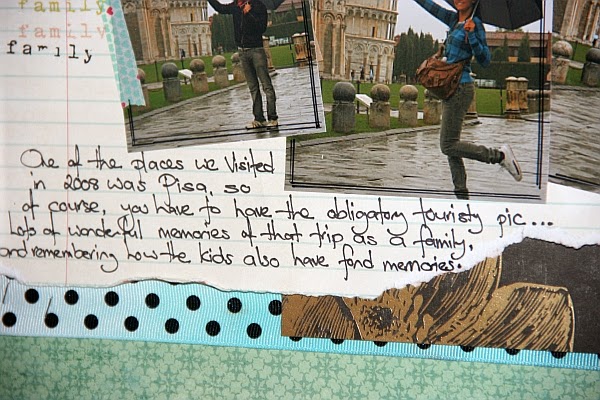 family
family
family
One of the places we visited
in 2008 was Pisa, so
of course, you have to have the obligatory touristy pic....
Lots of wonderful memories of that trip as a family,
and remembering how the kids also have fond memories.